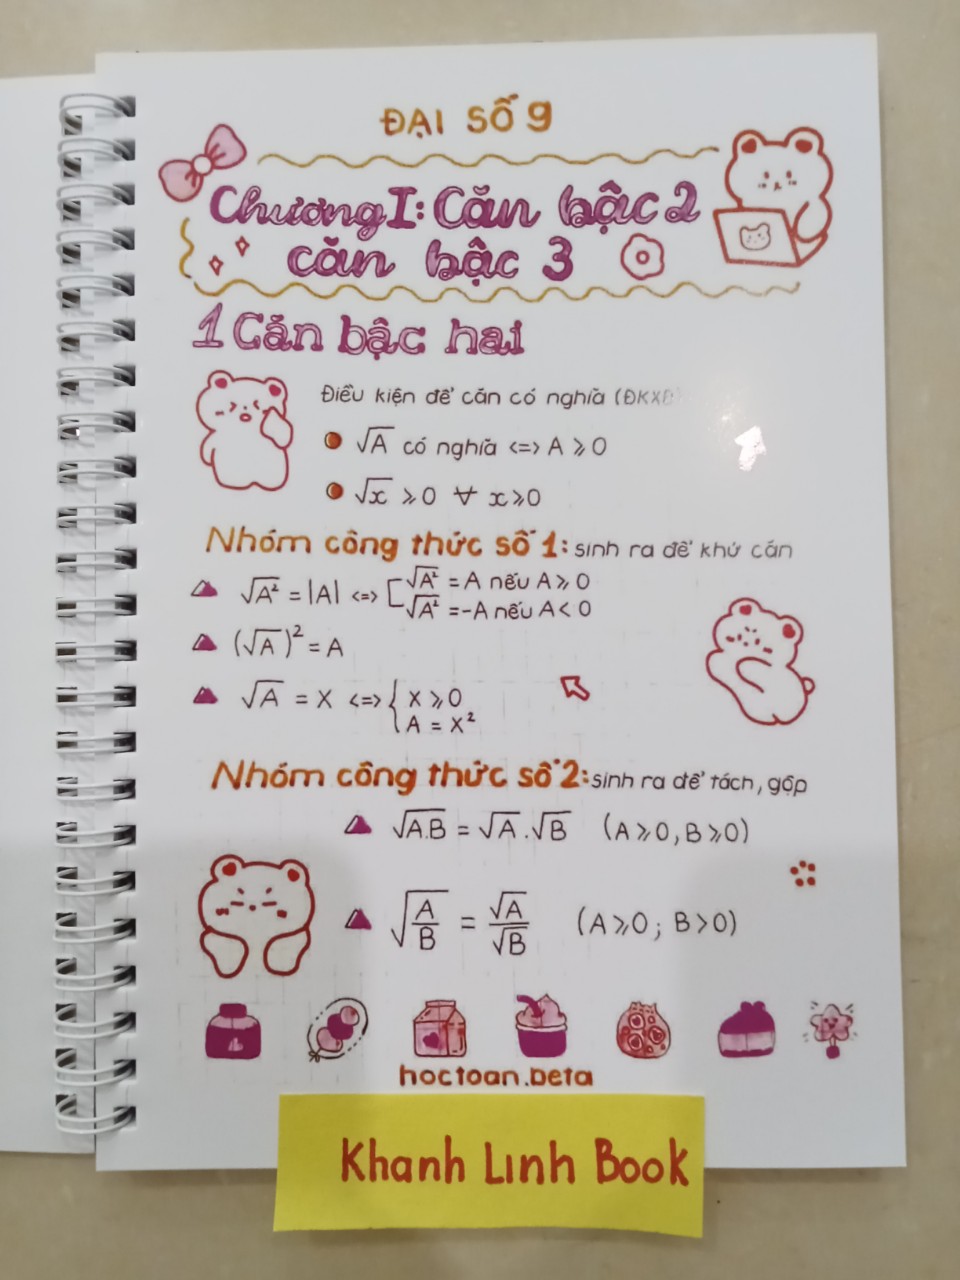 ĐẠI SỐ 9
Chương I: Căn bậc 2
căn bậc 3
1 Căn bậc hai
Điều kiện để căn có nghĩa (ĐKXĐ)
√A có nghĩa <=> A ⩾ 0
√x ⩾ 0 ∀ x ⩾ 0
Nhóm công thức số 1: sinh ra để khứ căn
√A² = |A| <=> [ √A² = A nếu A ⩾ 0
√A² = -A nếu A < 0
(√A)² = A
√A = X <=> { X ⩾ 0
A = X²
Nhóm công thức số 2: sinh ra để tách, gộp
√A.B = √A . √B (A ⩾ 0, B ⩾ 0)
√(A/B) = √A/√B (A ⩾ 0; B > 0)
hoctoan.beta
Khanh Linh Book